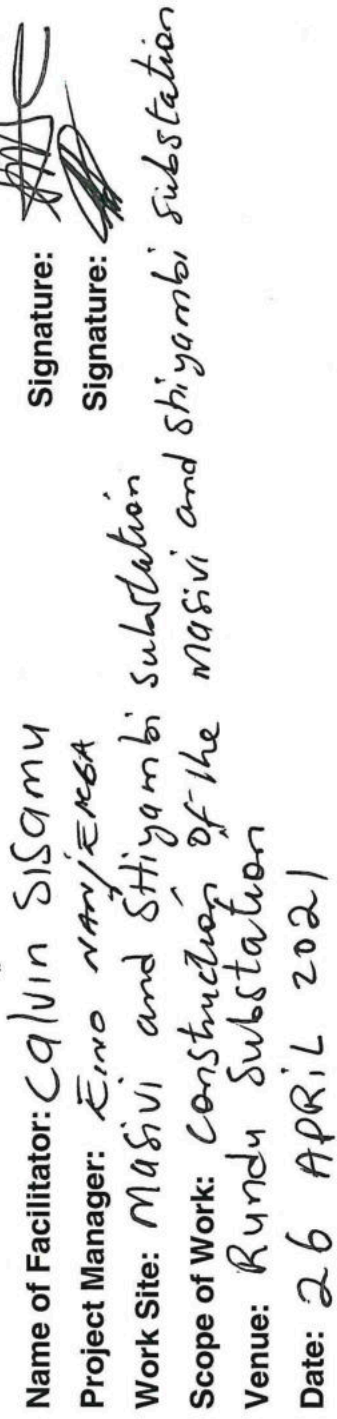 Name of Facilitator: Calvin SISamu Signature:
Project Manager: EINO Signature:
Work Site: Masivi and SHiyambi substation
Scope of Work: Construction of the Masivi and Shiyambi substation
Venue: Rundu Substation
Date: 26 APRIL 2021